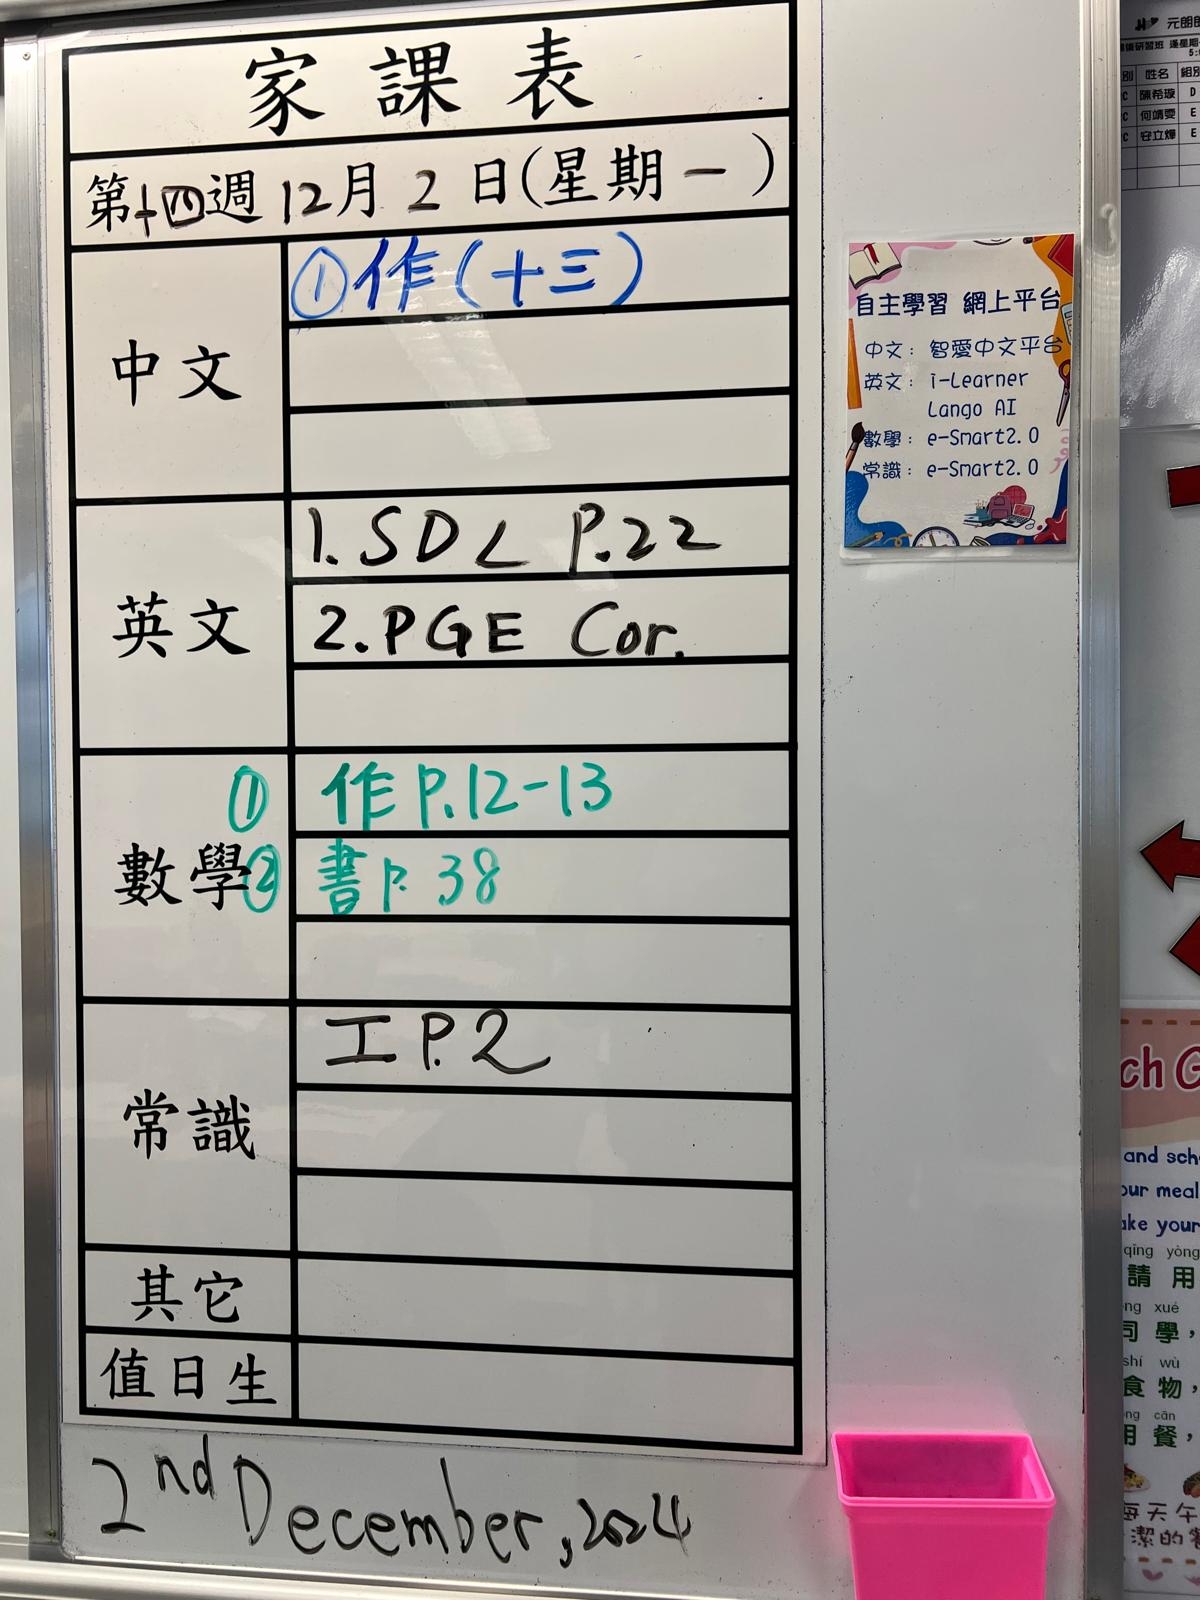 家課表
第十四週 12月 2 日(星期一)
中文
①作(十三)
英文
1. SDL P.22
2. PGE Cor.
數學
① 作 P.12-13
② 書 P. 38
常識
工 P.2
其它
值日生
2nd December, 2024
自主學習 網上平台
中文: 智愛中文平台
英文: i-Learner
Lango AI
數學: e-Smart2.0
常識: e-Smart2.0
元朗
姓名 組別
C 陳希璇 D
C 何靖雯 E
C 安立燁 E
ch G
and sch
our meal
ake your
qǐng yòng
請 用
ng xué
同 學,
shí wù
食 物,
ng cān
用 餐,
每天午
潔的